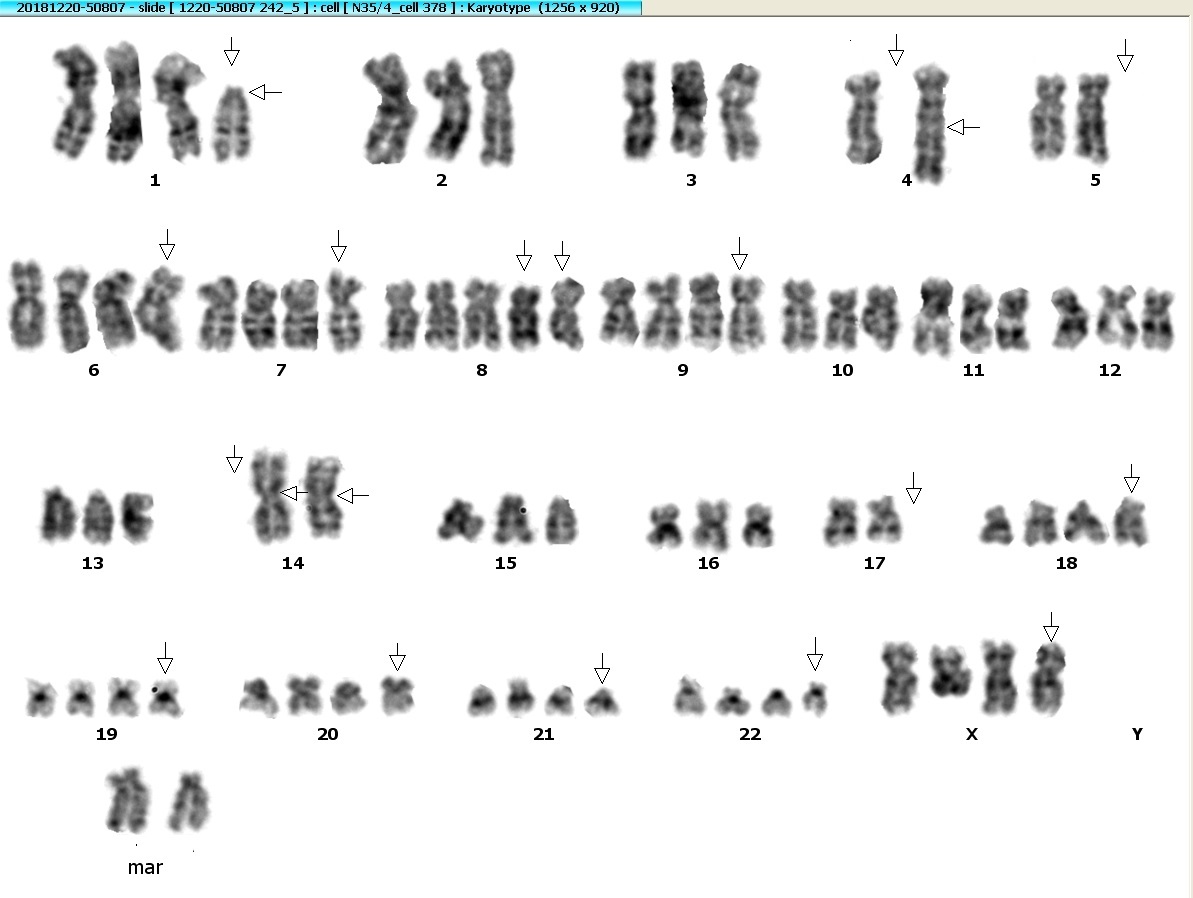 20181220-50807 - slide [ 1220-50807 242_5 ] : cell [ N35/4_cell 378 ] : Karyotype (1256 x 920)
1 2 3 4 5
6 7 8 9 10 11 12
13 14 15 16 17 18
19 20 21 22 X Y
mar